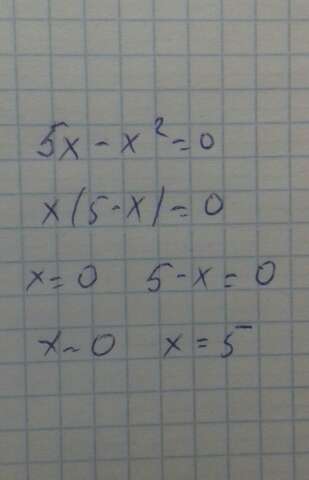 5x - x² = 0
x(5-x) = 0
x = 0 5-x = 0
x = 0 x = 5